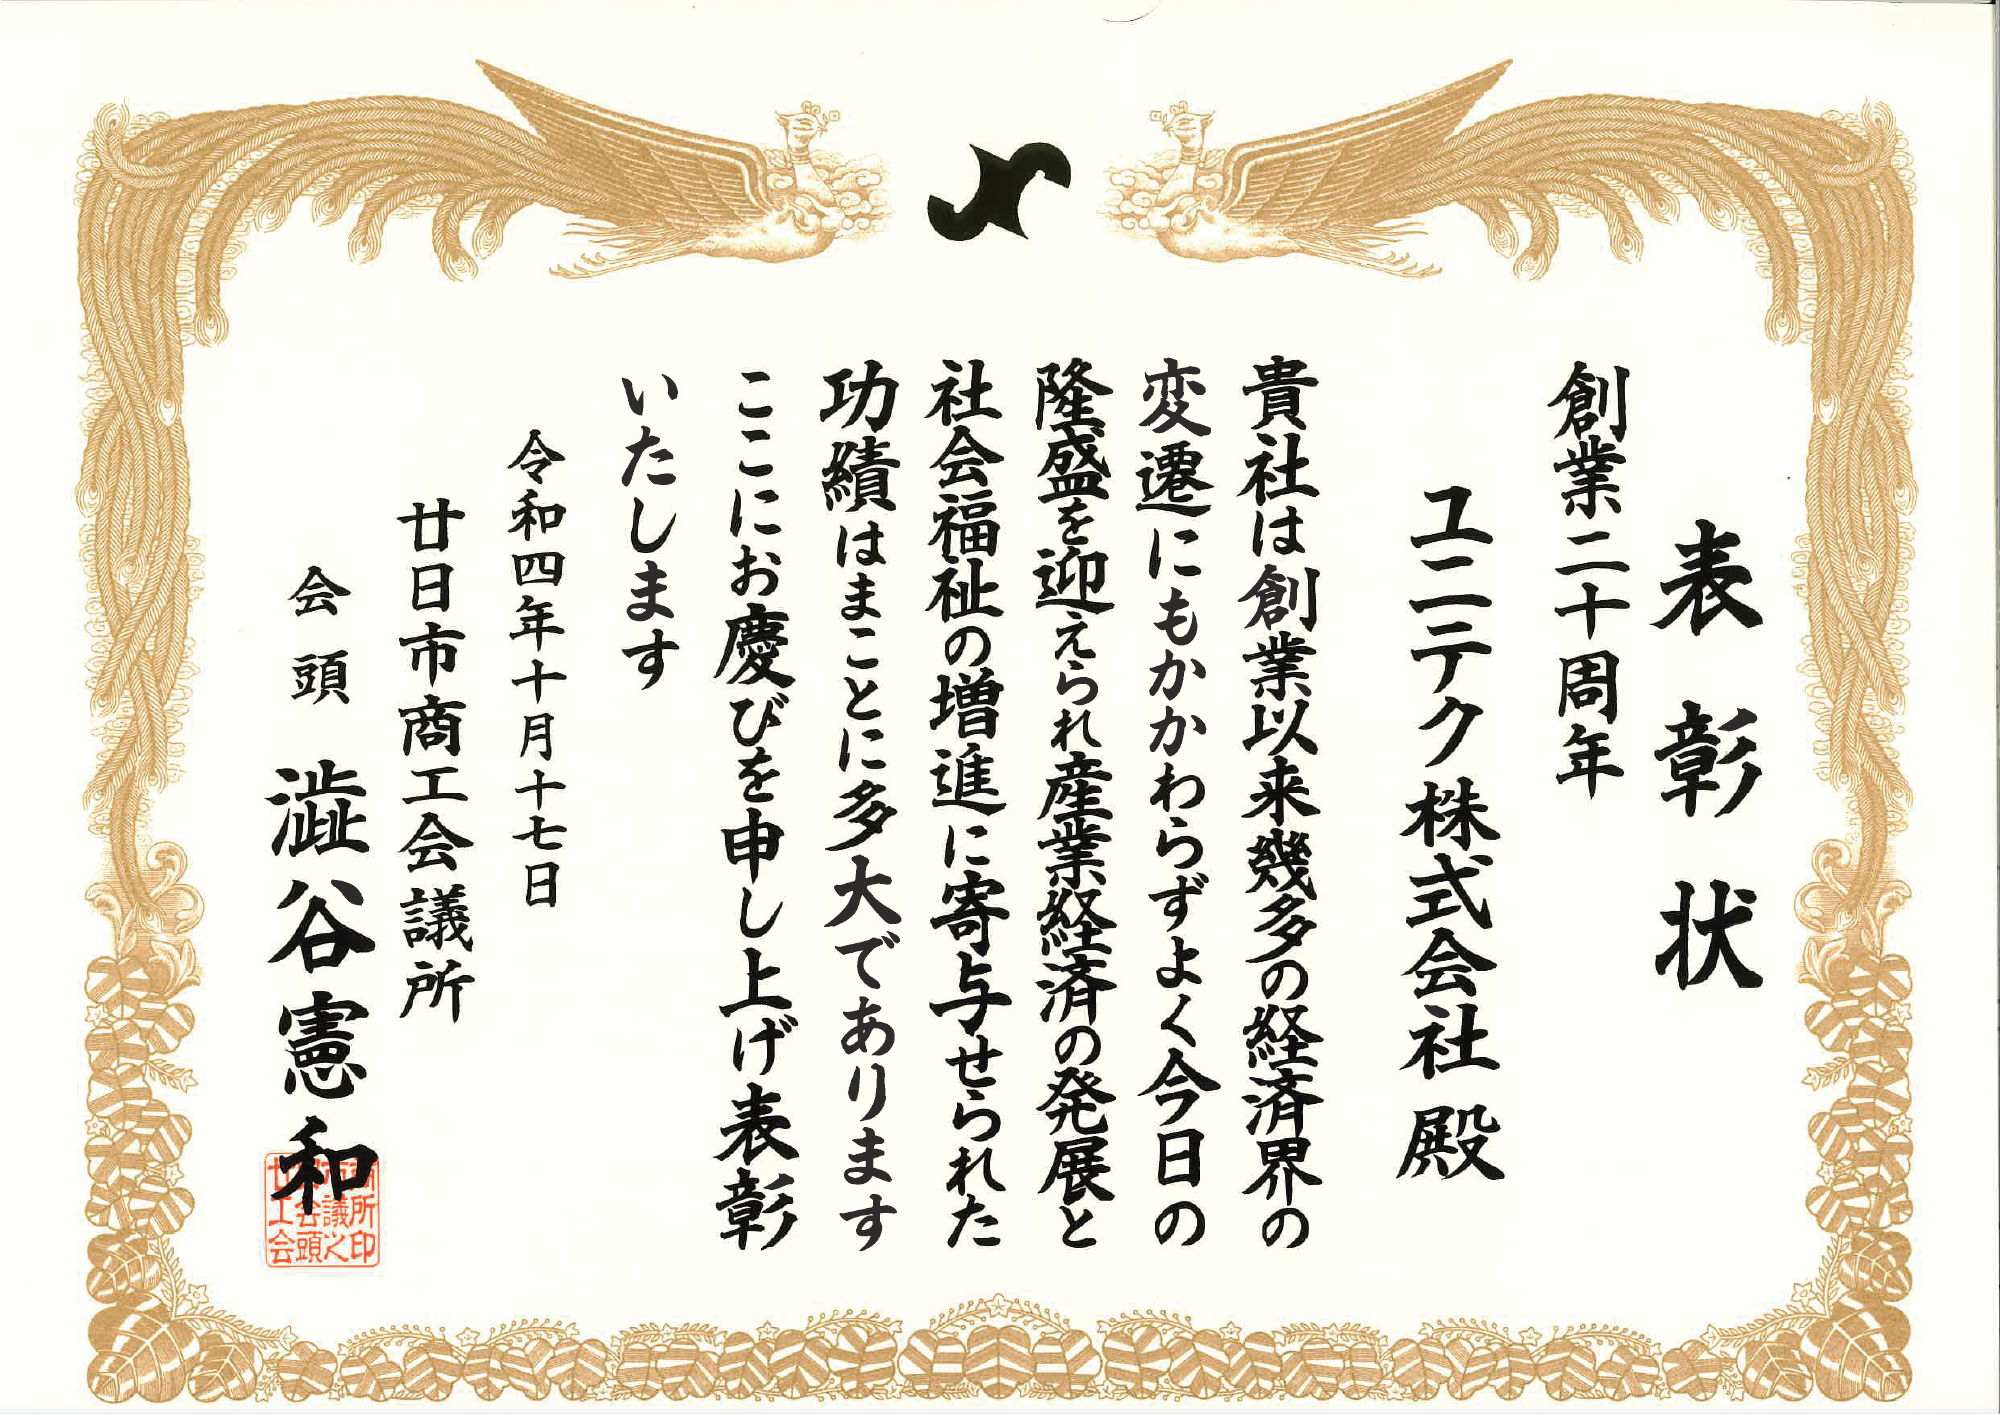 表彰状
創業二十周年
ユニテク株式会社 殿
貴社は創業以来幾多の経済界の
変遷にもかかわらずよく今日の
隆盛を迎えられ産業経済の発展と
社会福祉の増進に寄与せられた
功績はまことに多大であります
ここにお慶びを申し上げ表彰
いたします
令和四年十月十七日
廿日市商工会議所
会頭 澁谷憲和